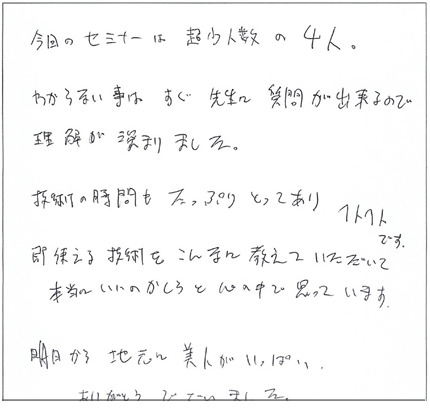 今回のセミナーは 超少人数の4人。
わからない事は すぐ 先生に 質問が出来るので
理解が 深まりました。
技術の時間も たっぷり とってあり ヘトヘトです。
即使える 技術を こんなに 教えて いただいて
本当に いいのかしらと 心の中で 思っています。
明日から 地元に 美人が いっぱい、
ありがとう ございました。